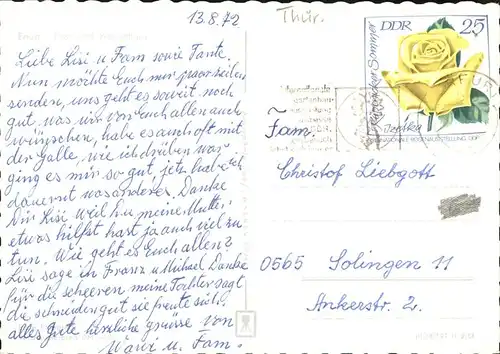 13.8.72
Thür.
Liebe Lisi u Fam sowie Tante.
Nun möchte Euch mir paar zeilen
senden, uns geht es soweit noch
gut, was wir von Euch allen auch
wünschen, habe es auch oft mit
der Galle, wie ich drüben war
ging es mir so gut, jetzt habe ich
dauernt was anderes. Danke
Dir Lisi weil du meine Mutter
etwas hilfst hast ja auch viel zu
tun. Wie geht es Euch allen?
Lisi sage in Franz u Michael Danke
für die scheeren meine Tochter sagt
die schneiden gut sie freute sich.
alles Gute herzliche grüsse von
u. Fam.
DDR
25
Fam.
Christof Liebgott
0565 Solingen 11
Ankerstr. 2.